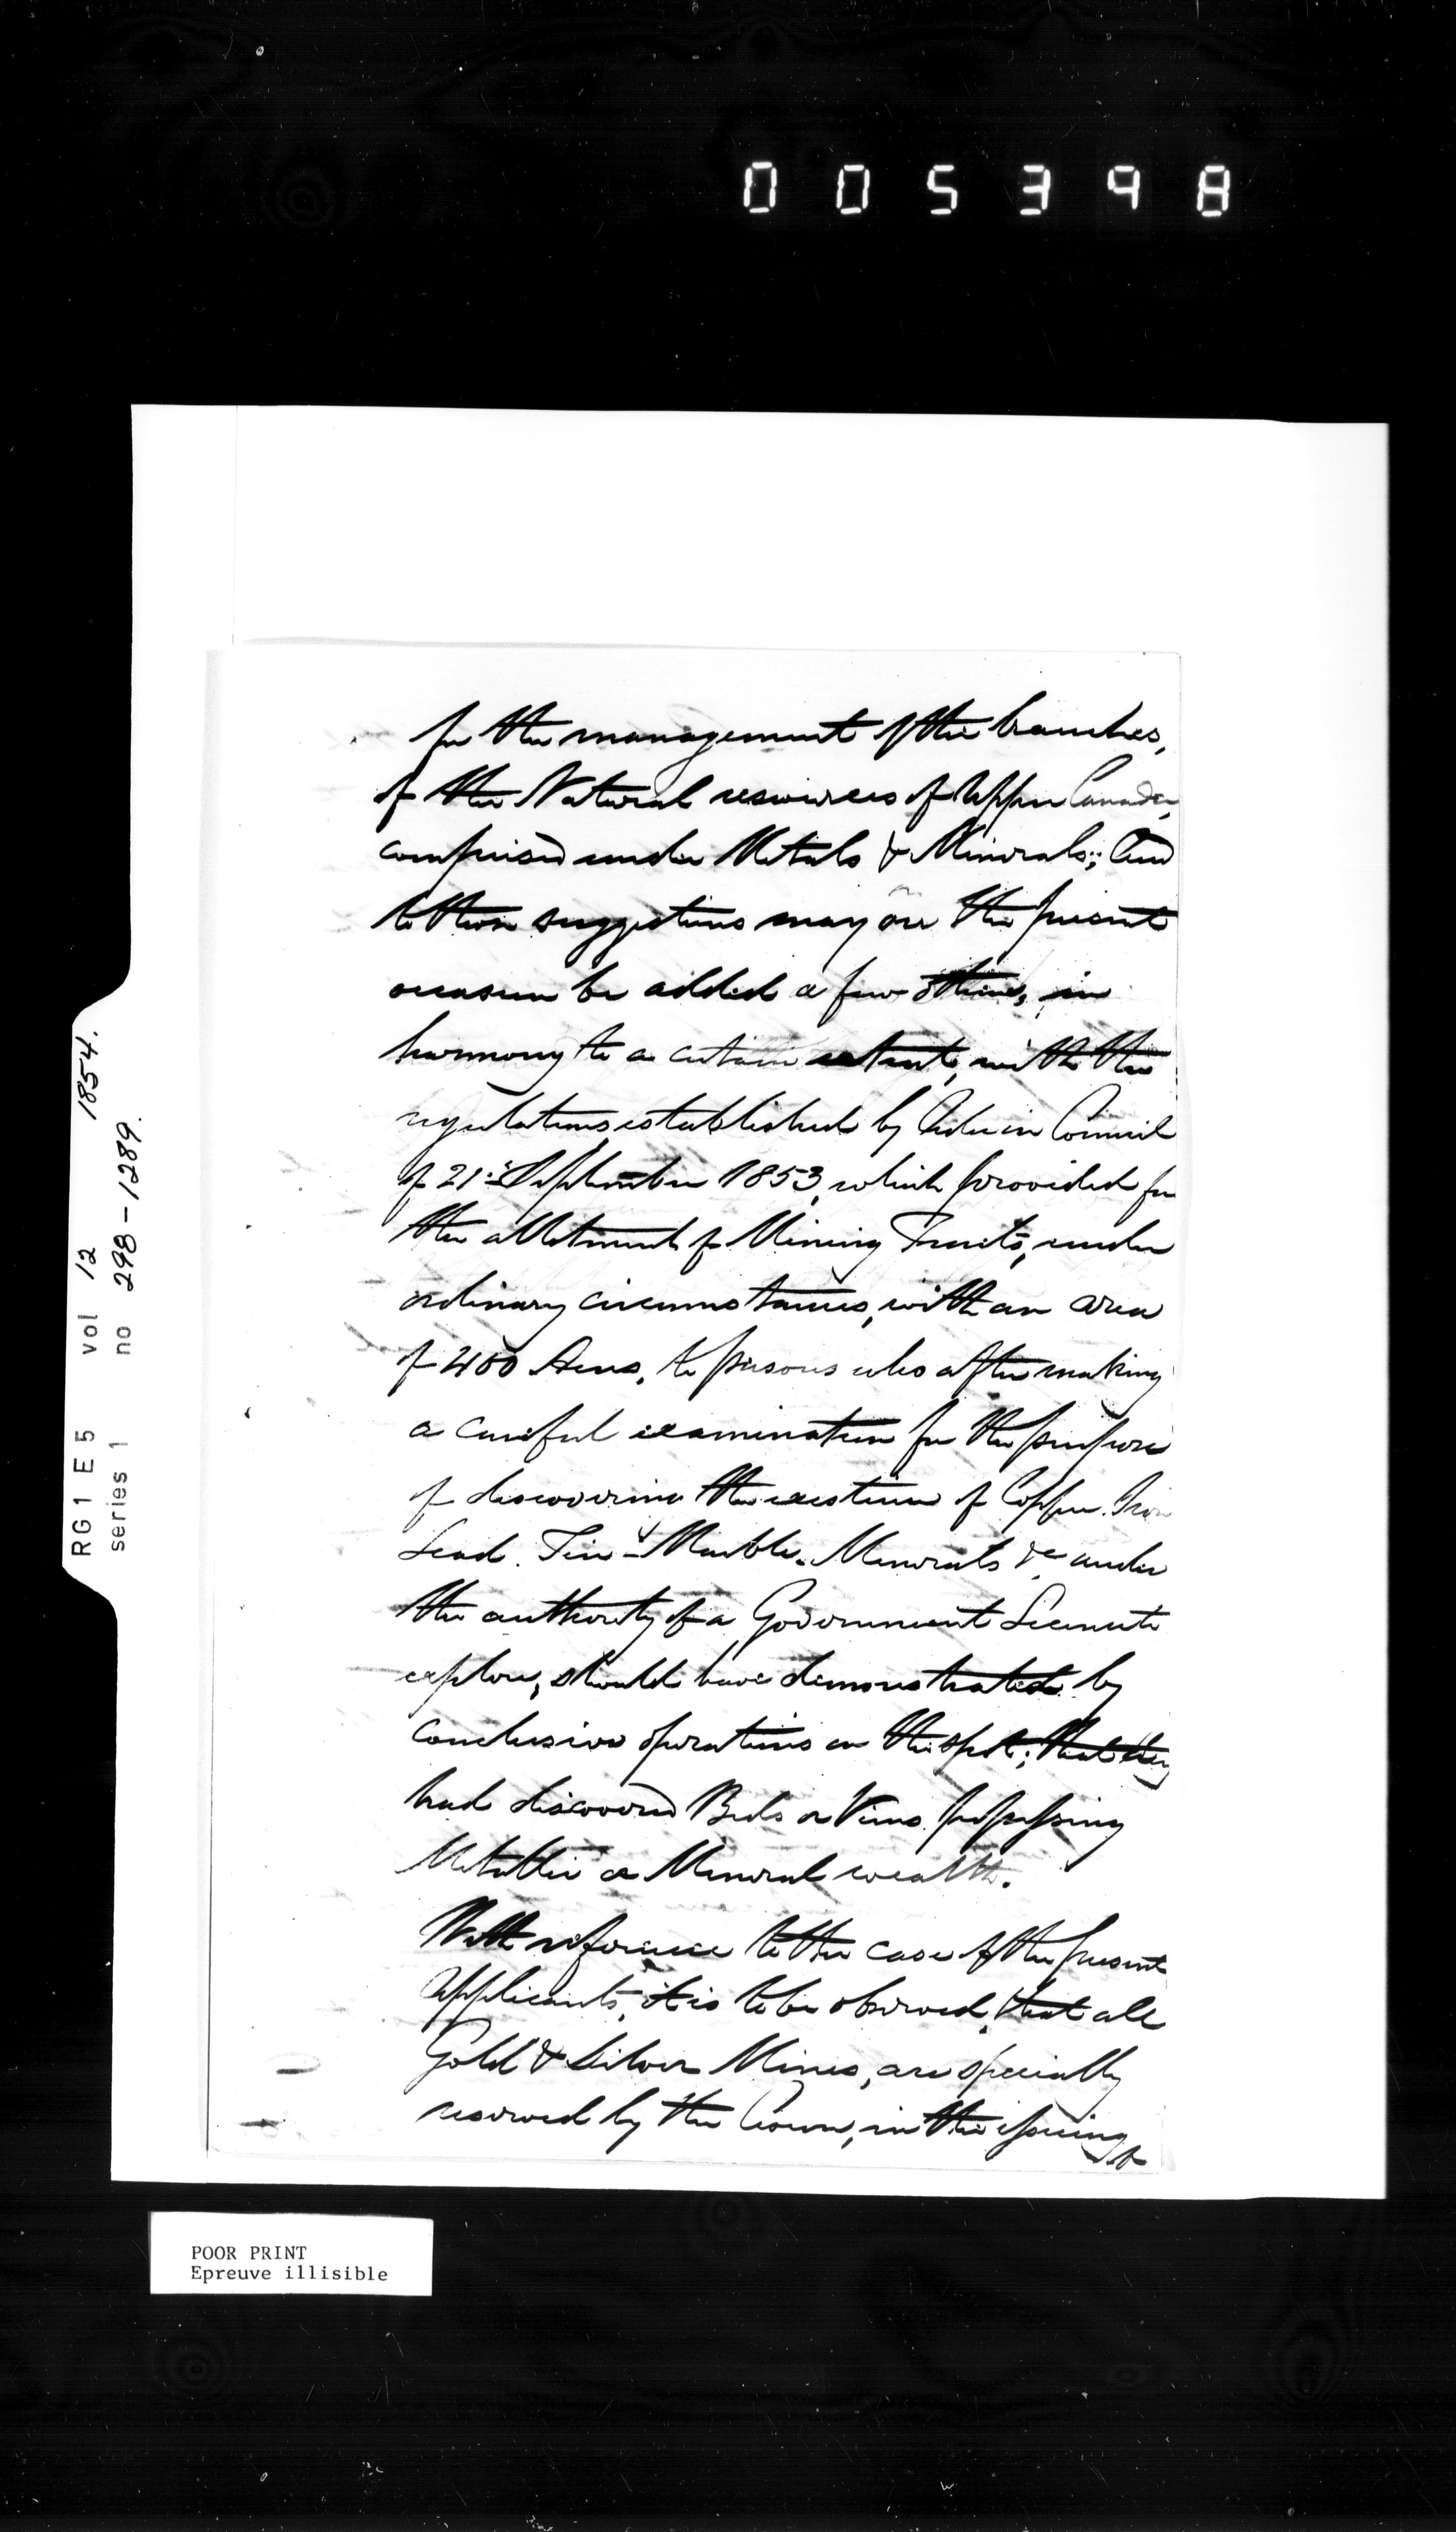 005398
RG1 E5 vol 12 1854.
series 1 no 298-1289.
for the management of the branches,
of the Natural resources of Upper Canada,
comprised under Metals & Minerals; And
to these suggestions may on the present
occasion be added a few others, in
harmony to a certain extent, with the
regulations established by Order in Council
of 21st September 1853, which provided for
the allotment of Mining Tracts, under
ordinary circumstances, with an area
of 400 Acres, to persons who after making
a careful examination for the purpose
of discovering the existence of Copper. Iron
Lead. Tin - Marble. Minerals &c under
the authority of a Government License to
explore, should have demonstrated by
conclusive operations on the spot; that they
had discovered Beds or Veins possessing
Metallic or Mineral wealth.
With reference to the case of the present
Applicants, it is to be observed, that all
Gold & Silver Mines, are specially
reserved by the Crown, in the issuing
POOR PRINT
Epreuve illisible